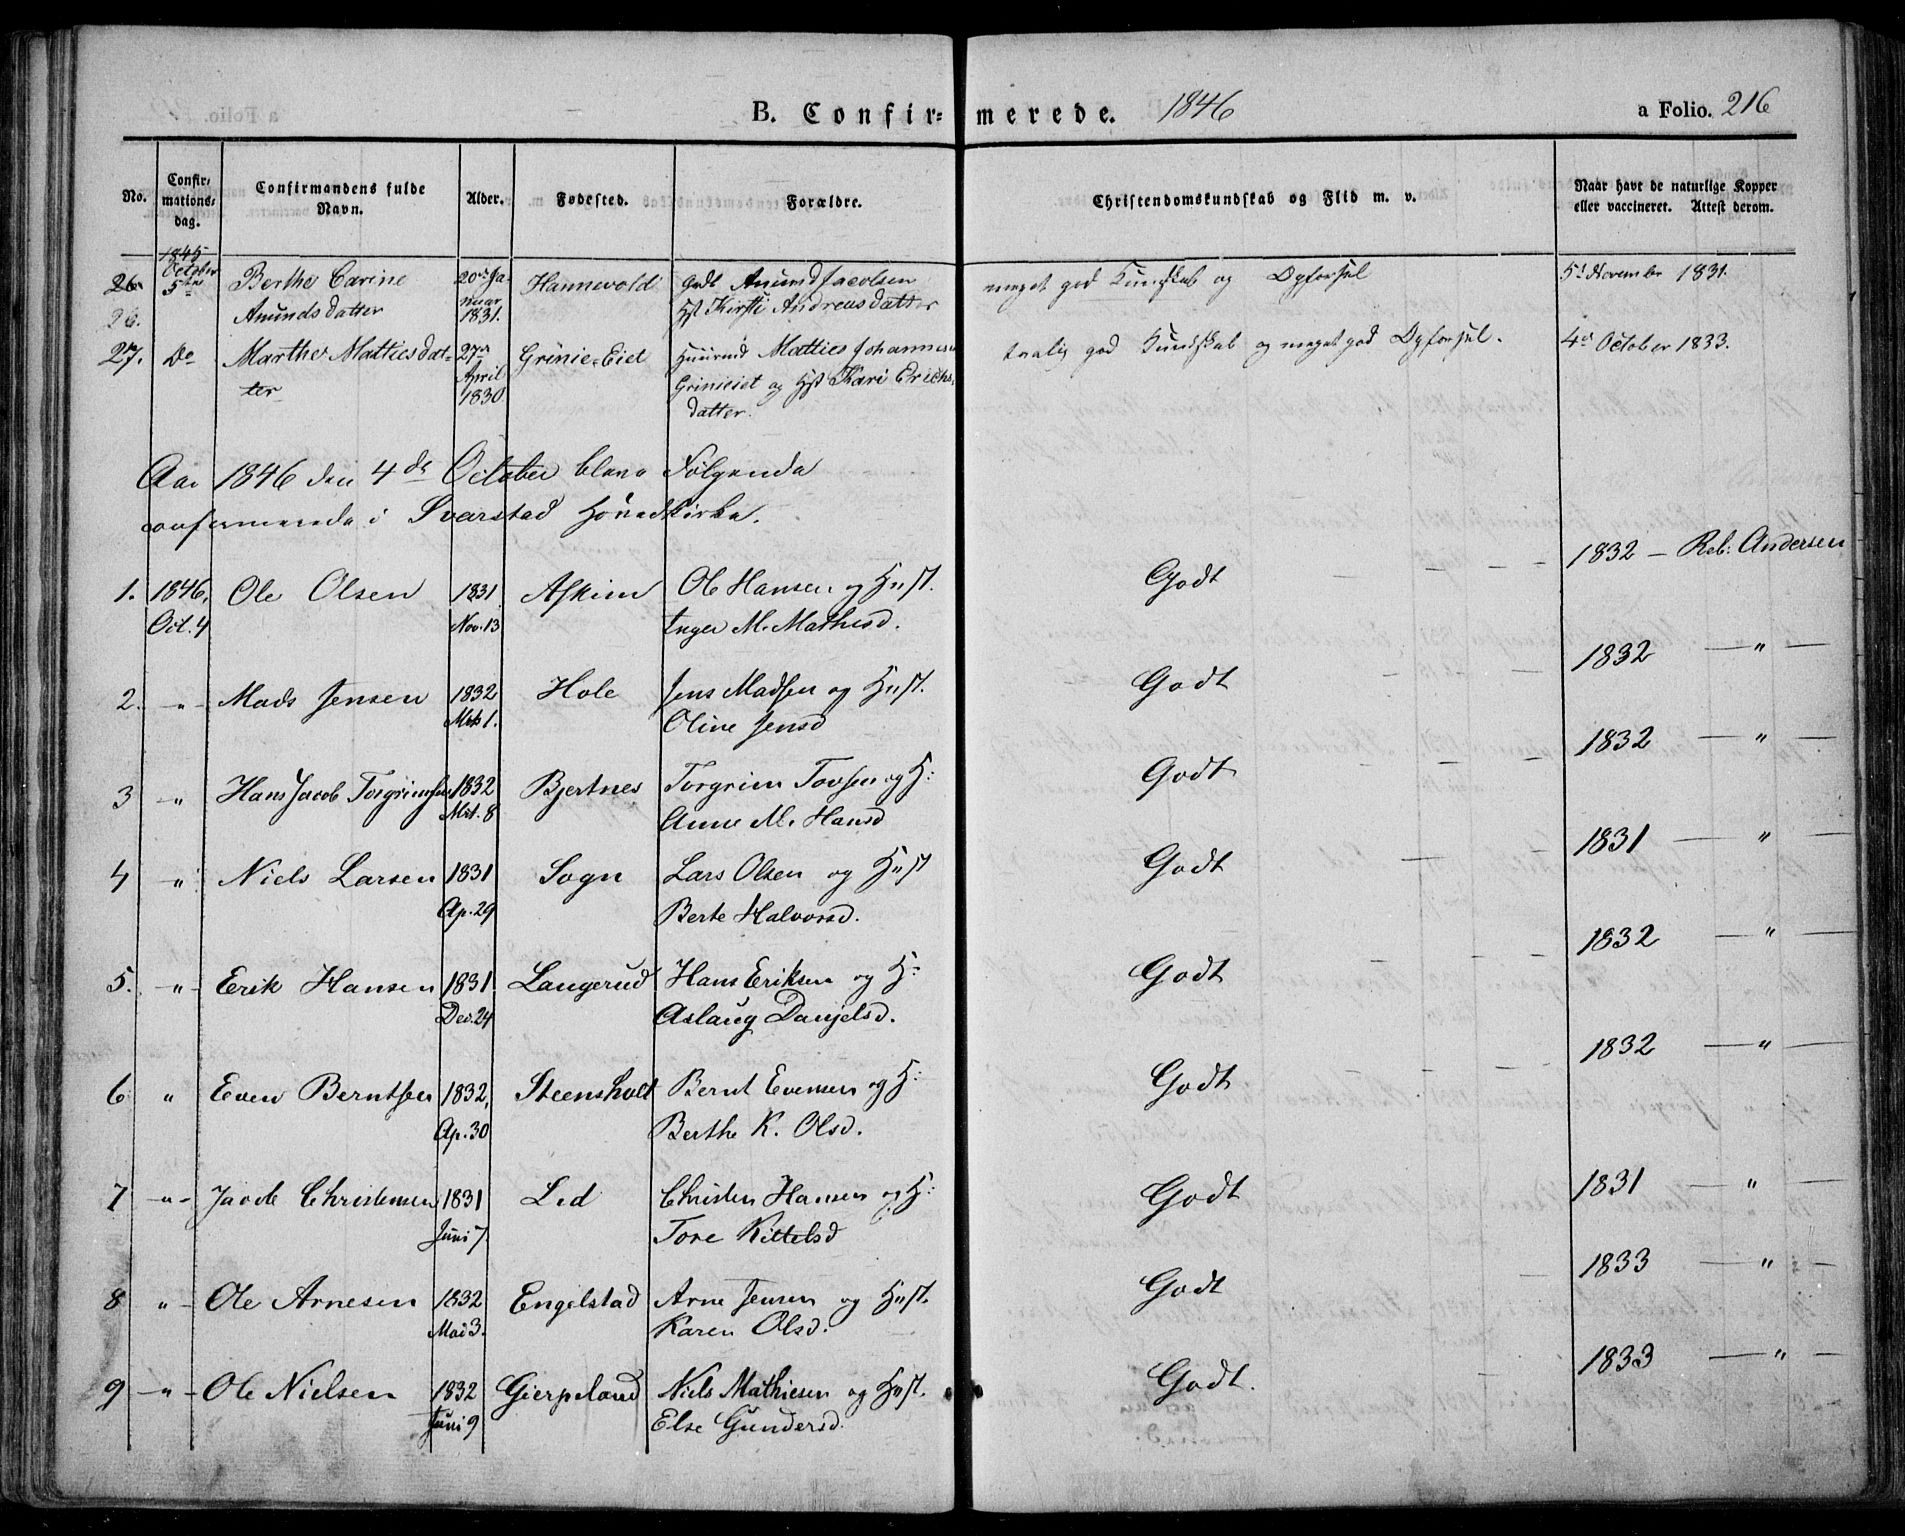 B. Confirmerede. 1846 a Folio. 216
No. Confirmationsdag. Confirmandens fulde Navn. Alder. Fødested. Forældre. Christendomskundskab og Flid m. v. Naar havt de naturlige Kopper eller vaccineret. Attest derom.
1845 October 5te
26. Berthe Carine 20de Ja- Hannevold Anund Jacobsen meget god Kundskab og Opførsel 5d November 1831.
26. Anundsdatter nuar 1831. Hst Kirsti Andreasdatter
27. Do Marthe Mattiesdat- 27de Grinie-Eiet Huusmd Matties Johannesen taalig god Kundskab og meget god Opførsel. 4de October 1833.
ter April 1830. Grinieiet og Hst Kari Erichs-
datter.
Aar 1846 den 4de October bleve Følgende
confirmerede i Svarstad Hovedkirke.
1. 1846, Ole Olsen 1831 Askim Ole Hansen og Hust. Godt 1832 — Reb: Andersen
Oct. 4 Nov. 13 Inger M. Mathisd.
2. " Mads Jensen 1832 Hole Jens Madsen og Hust. Godt 1832 — " —
Mrts 1. Oline Jensd
3 " Hans Jacob Torgrimsen 1832 Bjertnes Torgrim Tovsen og H: Godt 1832 — " —
Mrt. 8 Anne M. Hansd
4 " Niels Larsen 1831 Sogn Lars Olsen og Hust Godt 1831 — " —
Ap. 29 Berte Halvorsd.
5. " Erik Hansen 1831. Langerud Hans Eriksen og H: Godt 1832 — " —
Dec. 24 Aslaug Danjelsd.
6 " Even Berntsen 1832, Steensholt Bernt Evensen og H: Godt 1832 — " —
Ap. 30 Berthe K. Olsd.
7 " Jacob Christensen 1831 Lid Christen Hansen og H: Godt 1831 — " —
Juni 7. Tore Kittelsd
8 " Ole Arnesen 1832 Engelstad Arne Jensen og Hust. Godt 1833 — " —
Mai 3. Karen Olsd.
9 " Ole Nielsen 1832 Gierpeland Niels Mathiesen og Hust. Godt. 1833 — " —
Juni 9 Else Gundersd.